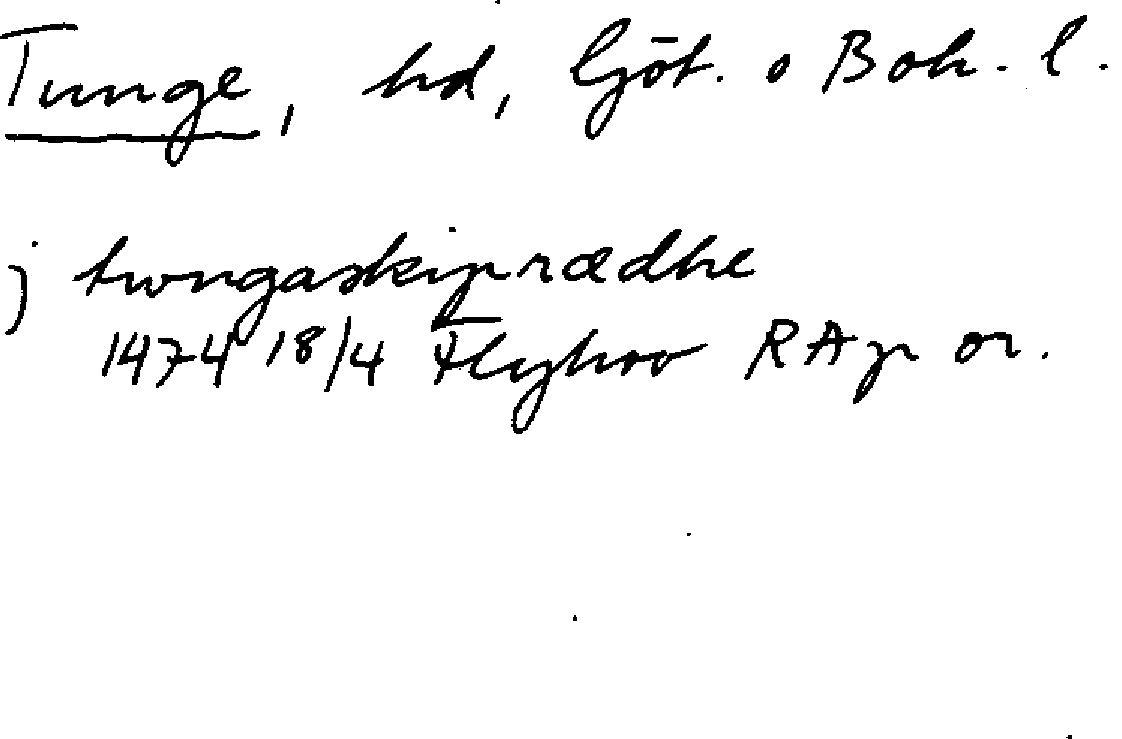 Tunge, hd, Göt. o Boh. l.
j twngaskiprædhe
1474 18/4 Flyhov RAp or.